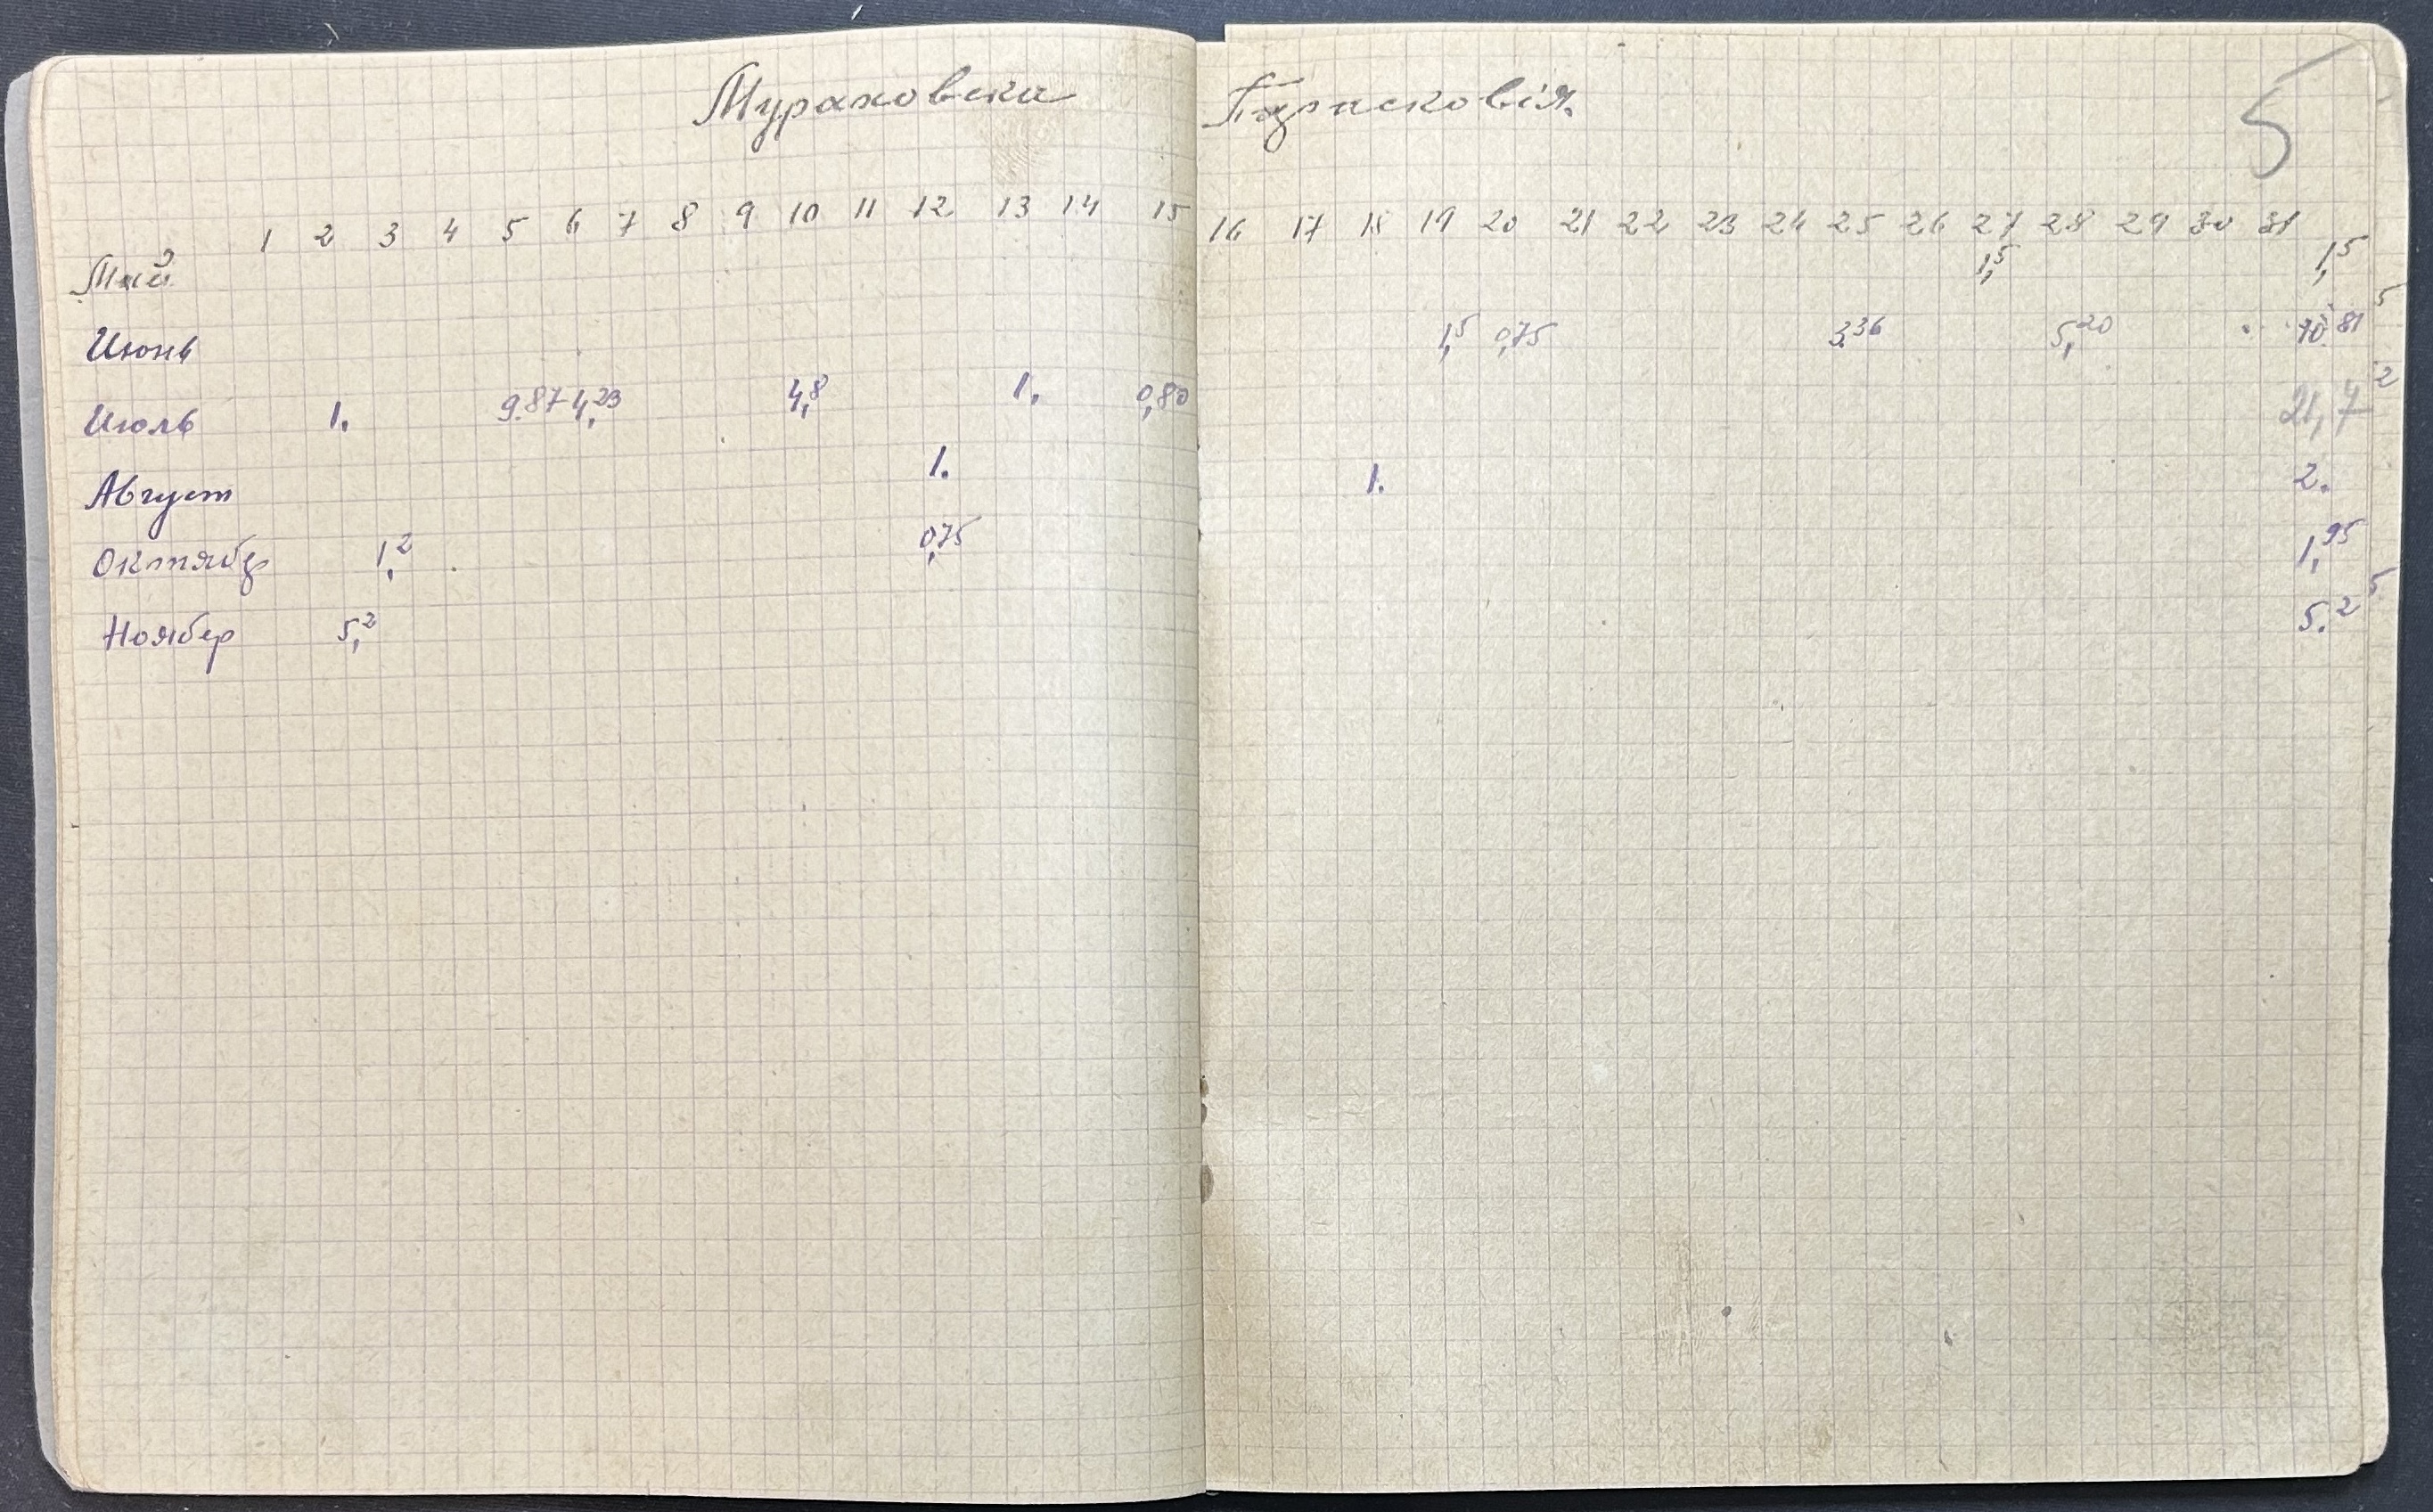 Мураховска Парасковія.
5
1 2 3 4 5 6 7 8 9 10 11 12 13 14 15 16 17 18 19 20 21 22 23 24 25 26 27 28 29 30 31
Май 1,5 1,5
Июнь 1,5 0,75 3.36 5,20 10.81
Июль 1. 9.87 4,23 4,8 1. 0,80 21,7
Август 1. 1. 2.
Октябр 1,2 0,75 1,95
Ноябер 5,2 5.2